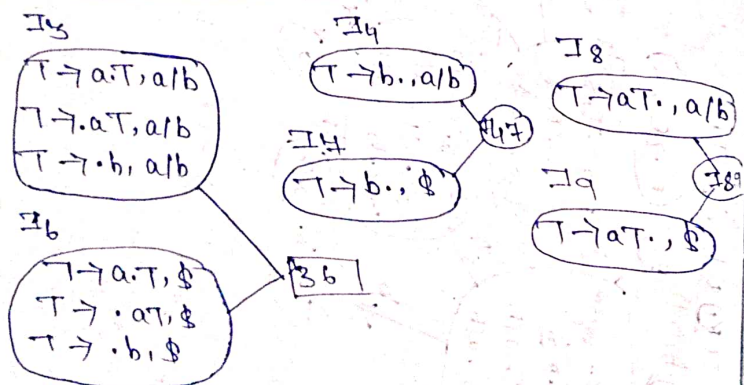 I3
T → a.T, a/b
T → .aT, a/b
T → .b, a/b
I6
T → a.T, $
T → .aT, $
T → .b, $
36
I4
T → b., a/b
I7
T → b., $
I47
I8
T → aT., a/b
I9
T → aT., $
I89